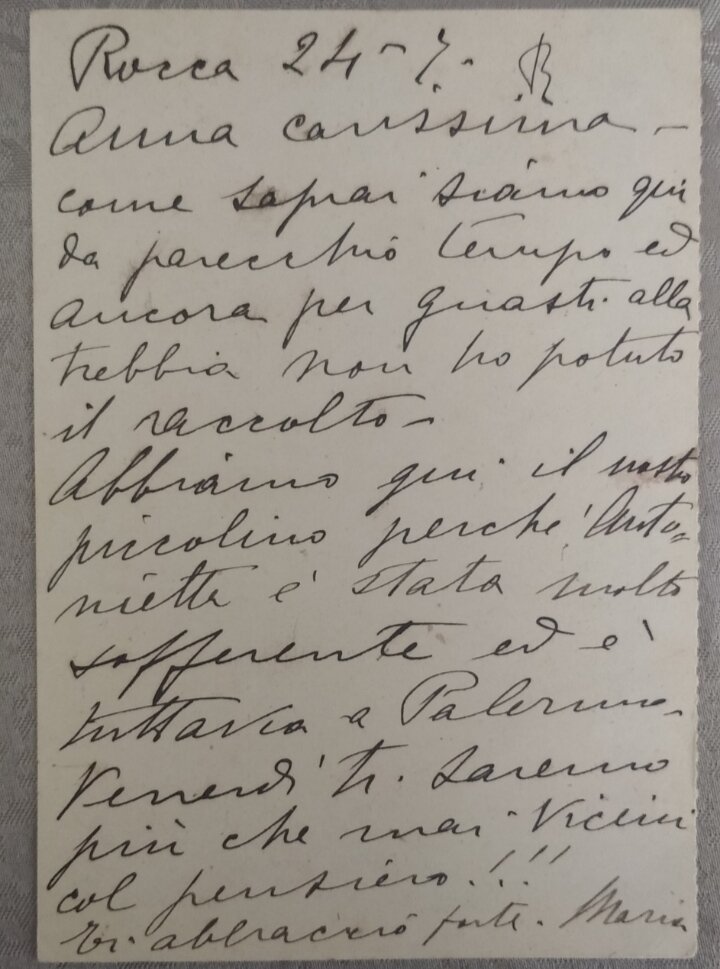 Rocca 24-7. R
Anna carissima -
come saprai siamo qui
da parecchio tempo ed
ancora per guasti alla
trebbia non ho potuto
il raccolto -
Abbiamo qui il nostro
piccolino perché Anto=
nietta è stata molto
sofferente ed è
tuttavia a Palermo.
Venerdì ti saremo
più che mai vicini
col pensiero.!!!
Ti abbraccio forte. Maria